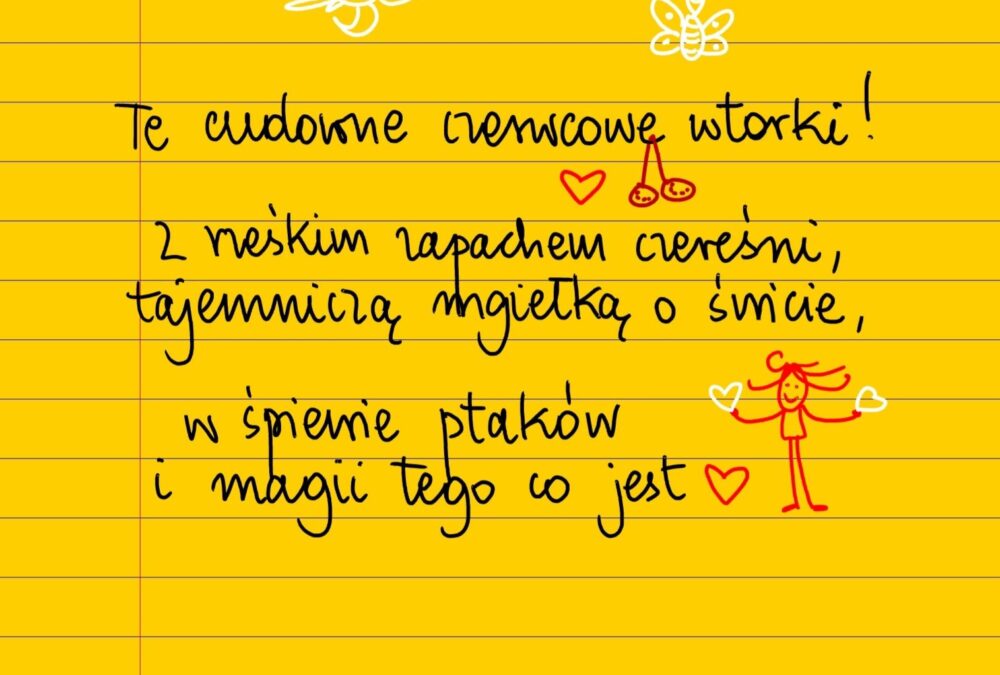 Te cudowne czerwcowe wtorki!
Z rześkim zapachem czereśni,
tajemniczą mgiełką o świcie,
w śpiewie ptaków
i magii tego co jest